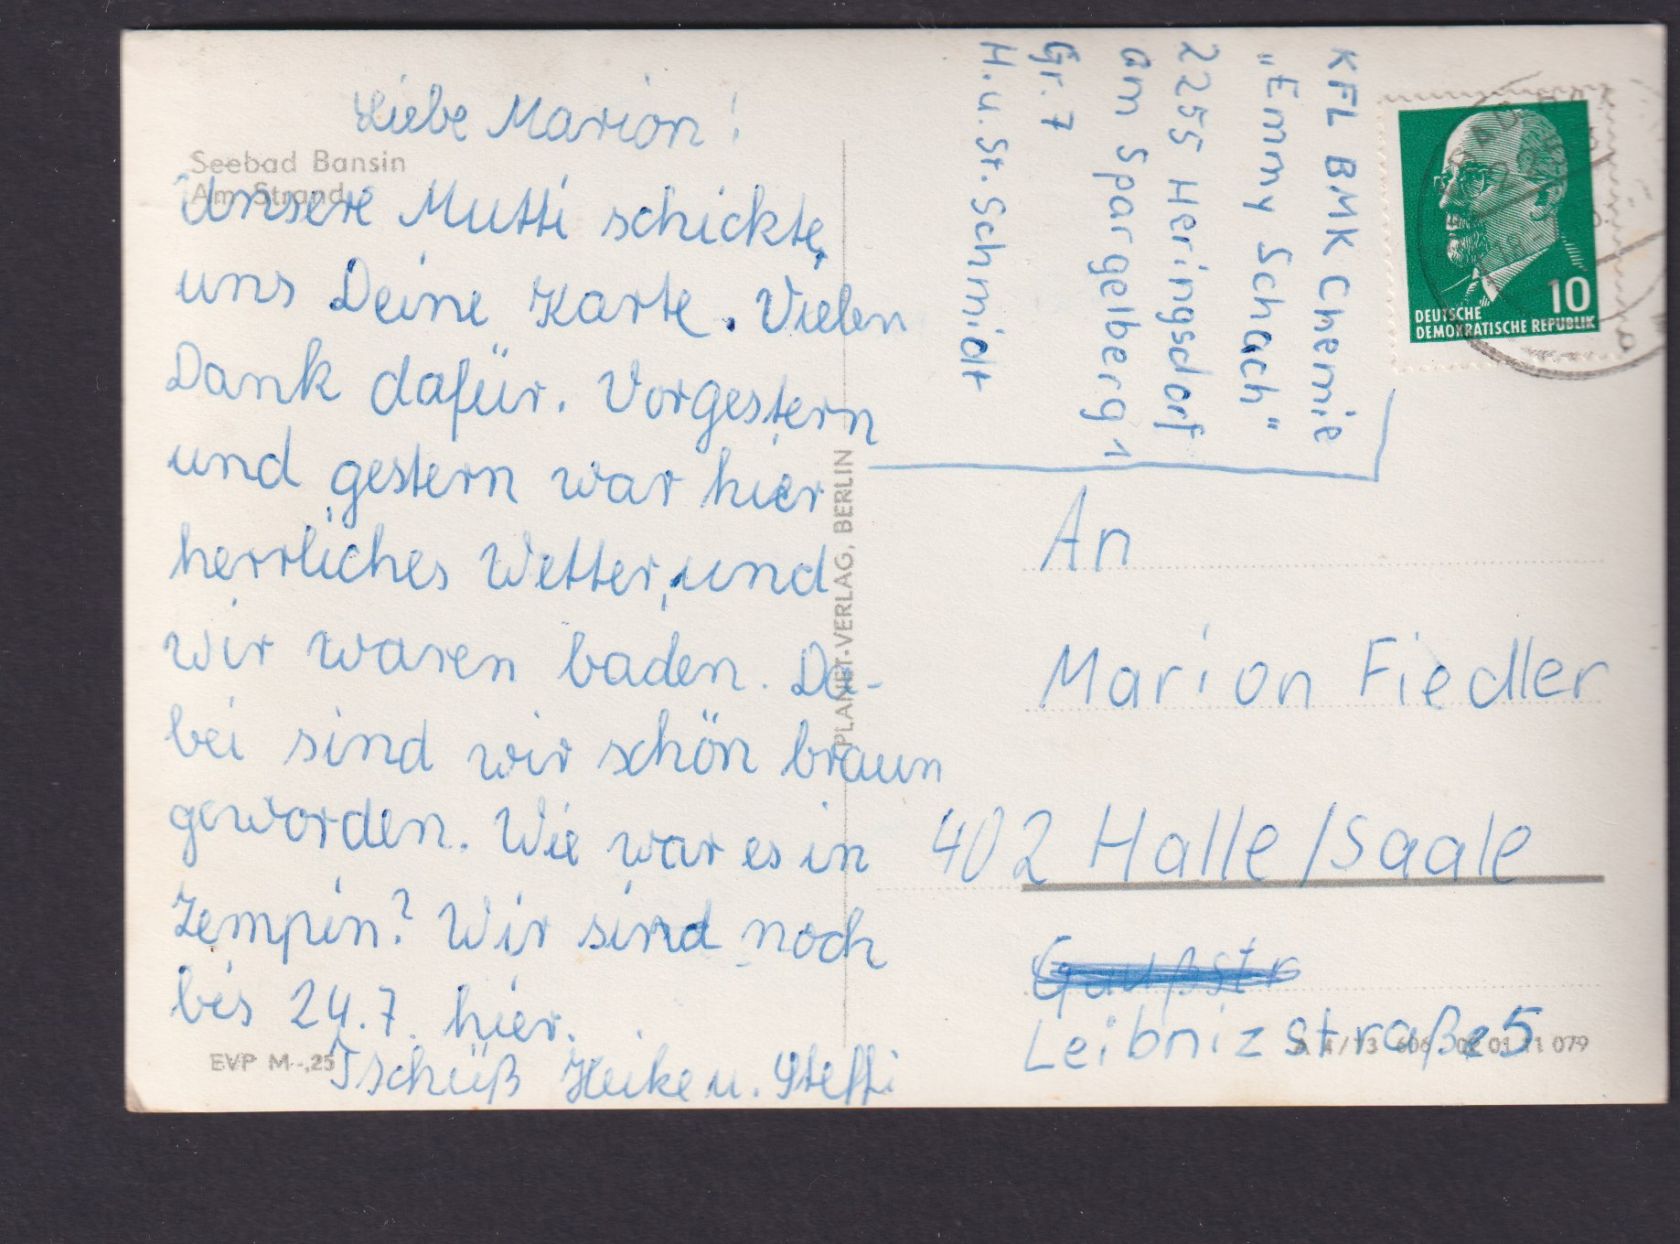 Liebe Marion!
Seebad Bansin
Am Strand
Unsere Mutti schickte
uns Deine Karte. Vielen
Dank dafür. Vorgestern
und gestern war hier
herrliches Wetter, und
wir waren baden. Da-
bei sind wir schön braun
geworden. Wie war es in
Zempin? Wir sind noch
bis 24.7. hier.
Tschüß Heike u. Steffi
EVP M -,25
PLANET-VERLAG, BERLIN
KFL BMK Chemie
"Emmy Schach"
2255 Heringsdorf
Am Spargelberg 1
Gr. 7
H. u. St. Schmidt
10
DEUTSCHE
DEMOKRATISCHE REPUBLIK
An
Marion Fiedler
402 Halle/Saale
Gaußstr
Leibnizstraße 5
01 11 079